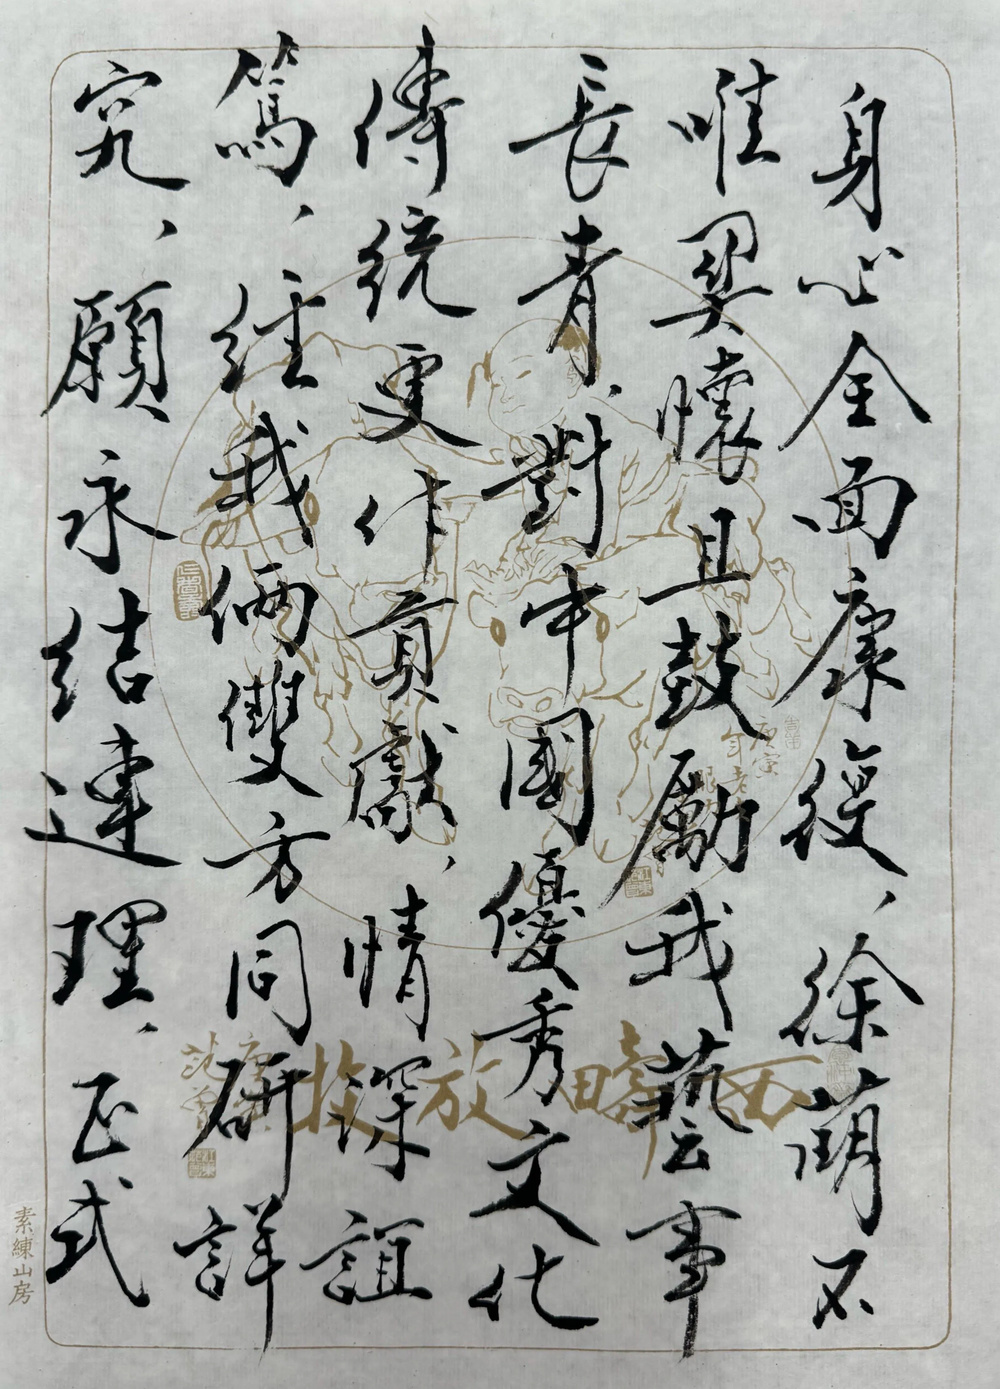 身心全面康復、徐萌不
唯異懷且鼓勵我藝事
長青、對中國優秀文化
傳統更作貢獻、情深誼
篤、經我倆雙方同研詳
究、願永結連理、正式
西疇放牧
庚寅
范曾
素練山房